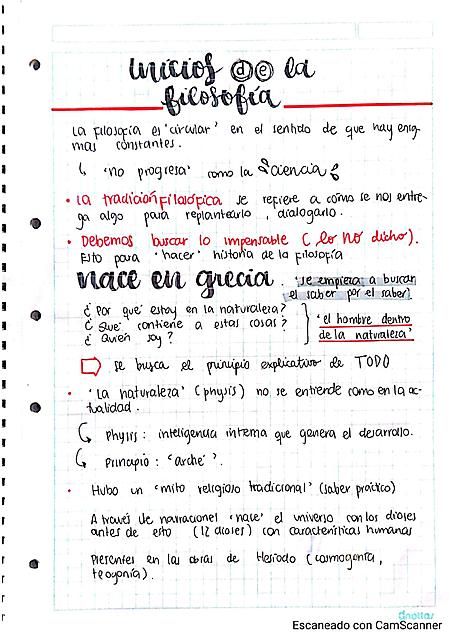 Inicios de la
filosofía
La filosofía es 'circular' en el sentido de que hay enig-
mas constantes.
↳ 'no progresa' como la ciencia
• La tradición filosófica se refiere a cómo se nos entre-
ga algo para replantearlo, dialogarlo.
• Debemos buscar lo impensable (lo no dicho).
Esto para 'hacer' historia de la filosofía
nace en grecia. 'se empieza a buscar
el saber por el saber'
¿Por qué estoy en la naturaleza?
¿Qué contiene a estas cosas?
¿Quién soy?
'el hombre dentro
de la naturaleza'
Se busca el principio explicativo de TODO
• 'La naturaleza' (physis) no se entiende como en la ac-
tualidad.
Physis: inteligencia interna que genera el desarrollo.
Principio: 'arché'.
• Hubo un 'mito religioso tradicional' (saber práctico)
A través de narraciones 'nace' el universo con los dioses
antes de esto (12 dioses) con características humanas
Presentes en las obras de Hesíodo (cosmogonía,
teogonía).
Escaneado con CamScanner